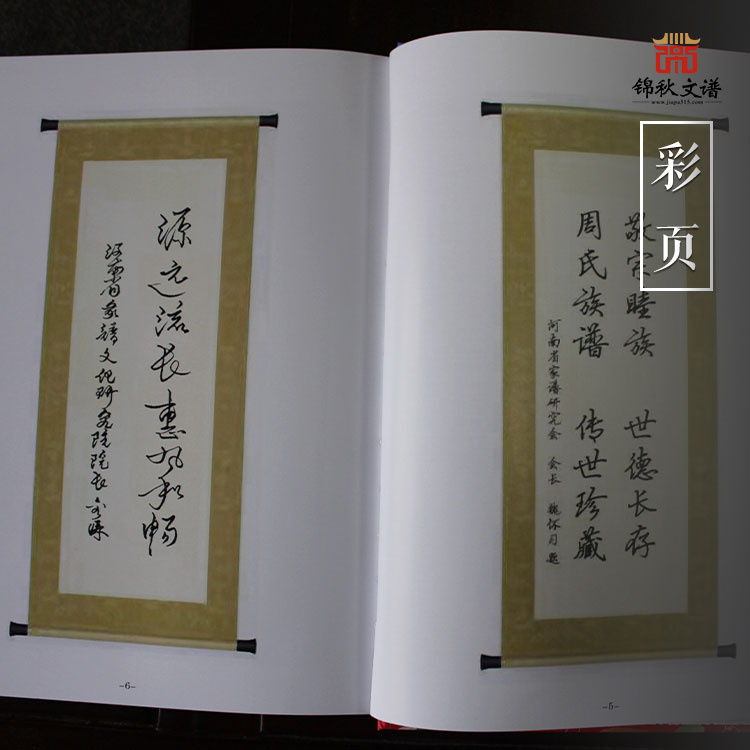 锦秋文谱
www.jiapu315.com
彩页
敬宗睦族 世德长存
周氏族谱 传世珍藏
河南省家谱研究会 会长 魏怀习题
源远流长惠风和畅
河南省家譜文化研究院院长
-6-
-5-